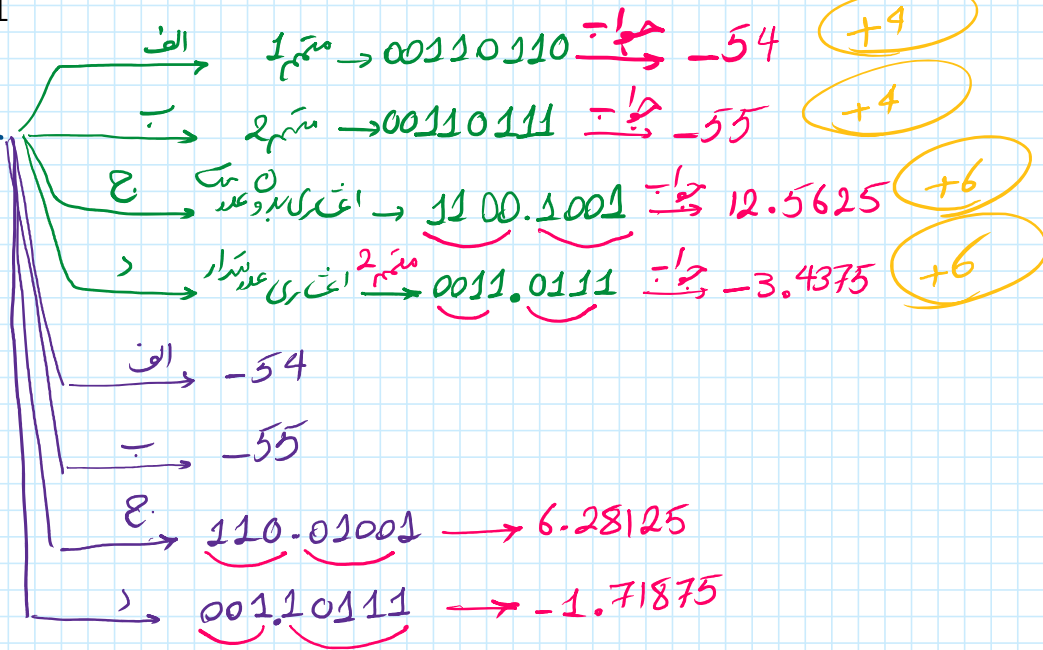 الف متمم 1 → 00110110 جواب → -54 +4
ب متمم 2 → 00110111 جواب → -55 +4
ج اعشاری بدون علامت → 1100.1001 جواب → 12.5625 +6
د اعشاری علامتدار متمم 2 → 0011.0111 جواب → -3.4375 +6
الف → -54
ب → -55
ج → 110.01001 → 6.28125
د → 001.10111 → -1.71875